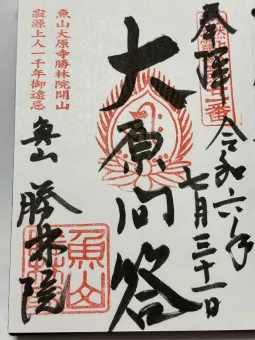 奉拝
令和六年
七月三十一日
大原問答
魚山大原寺勝林院開山
寂源上人一千年御遠忌
魚山
勝林院
魚山